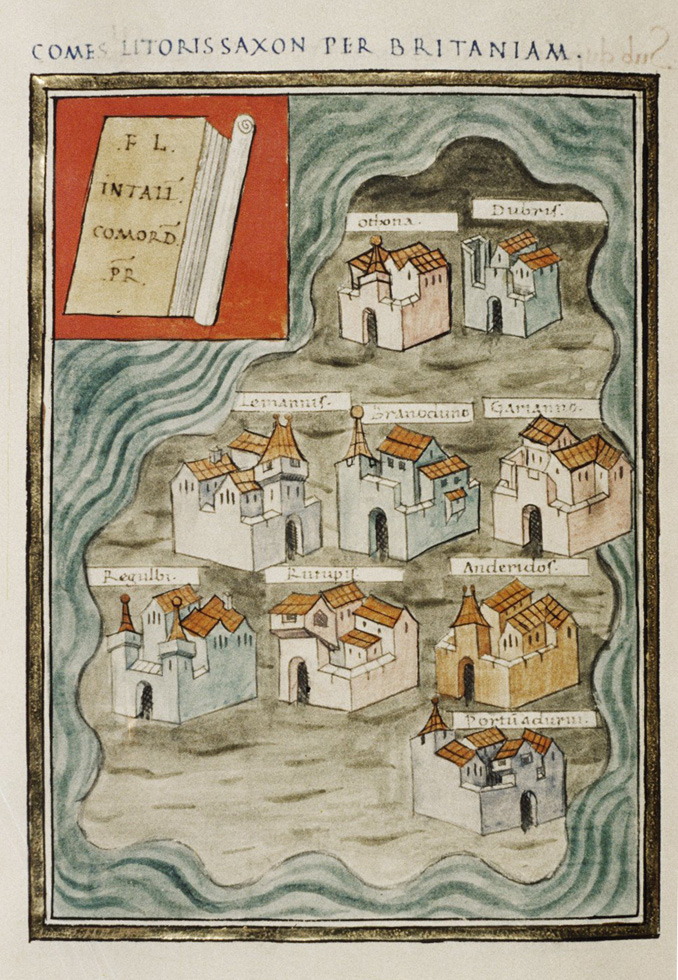 COMES LITORIS SAXON PER BRITANIAM.
.F L.
INTALL.
COMORD.
.PR.
Othona.
Dubris.
Lemannis.
Branoduno
Garianno.
Regulbi.
Rutupis.
Anderidos.
Portuadurni.